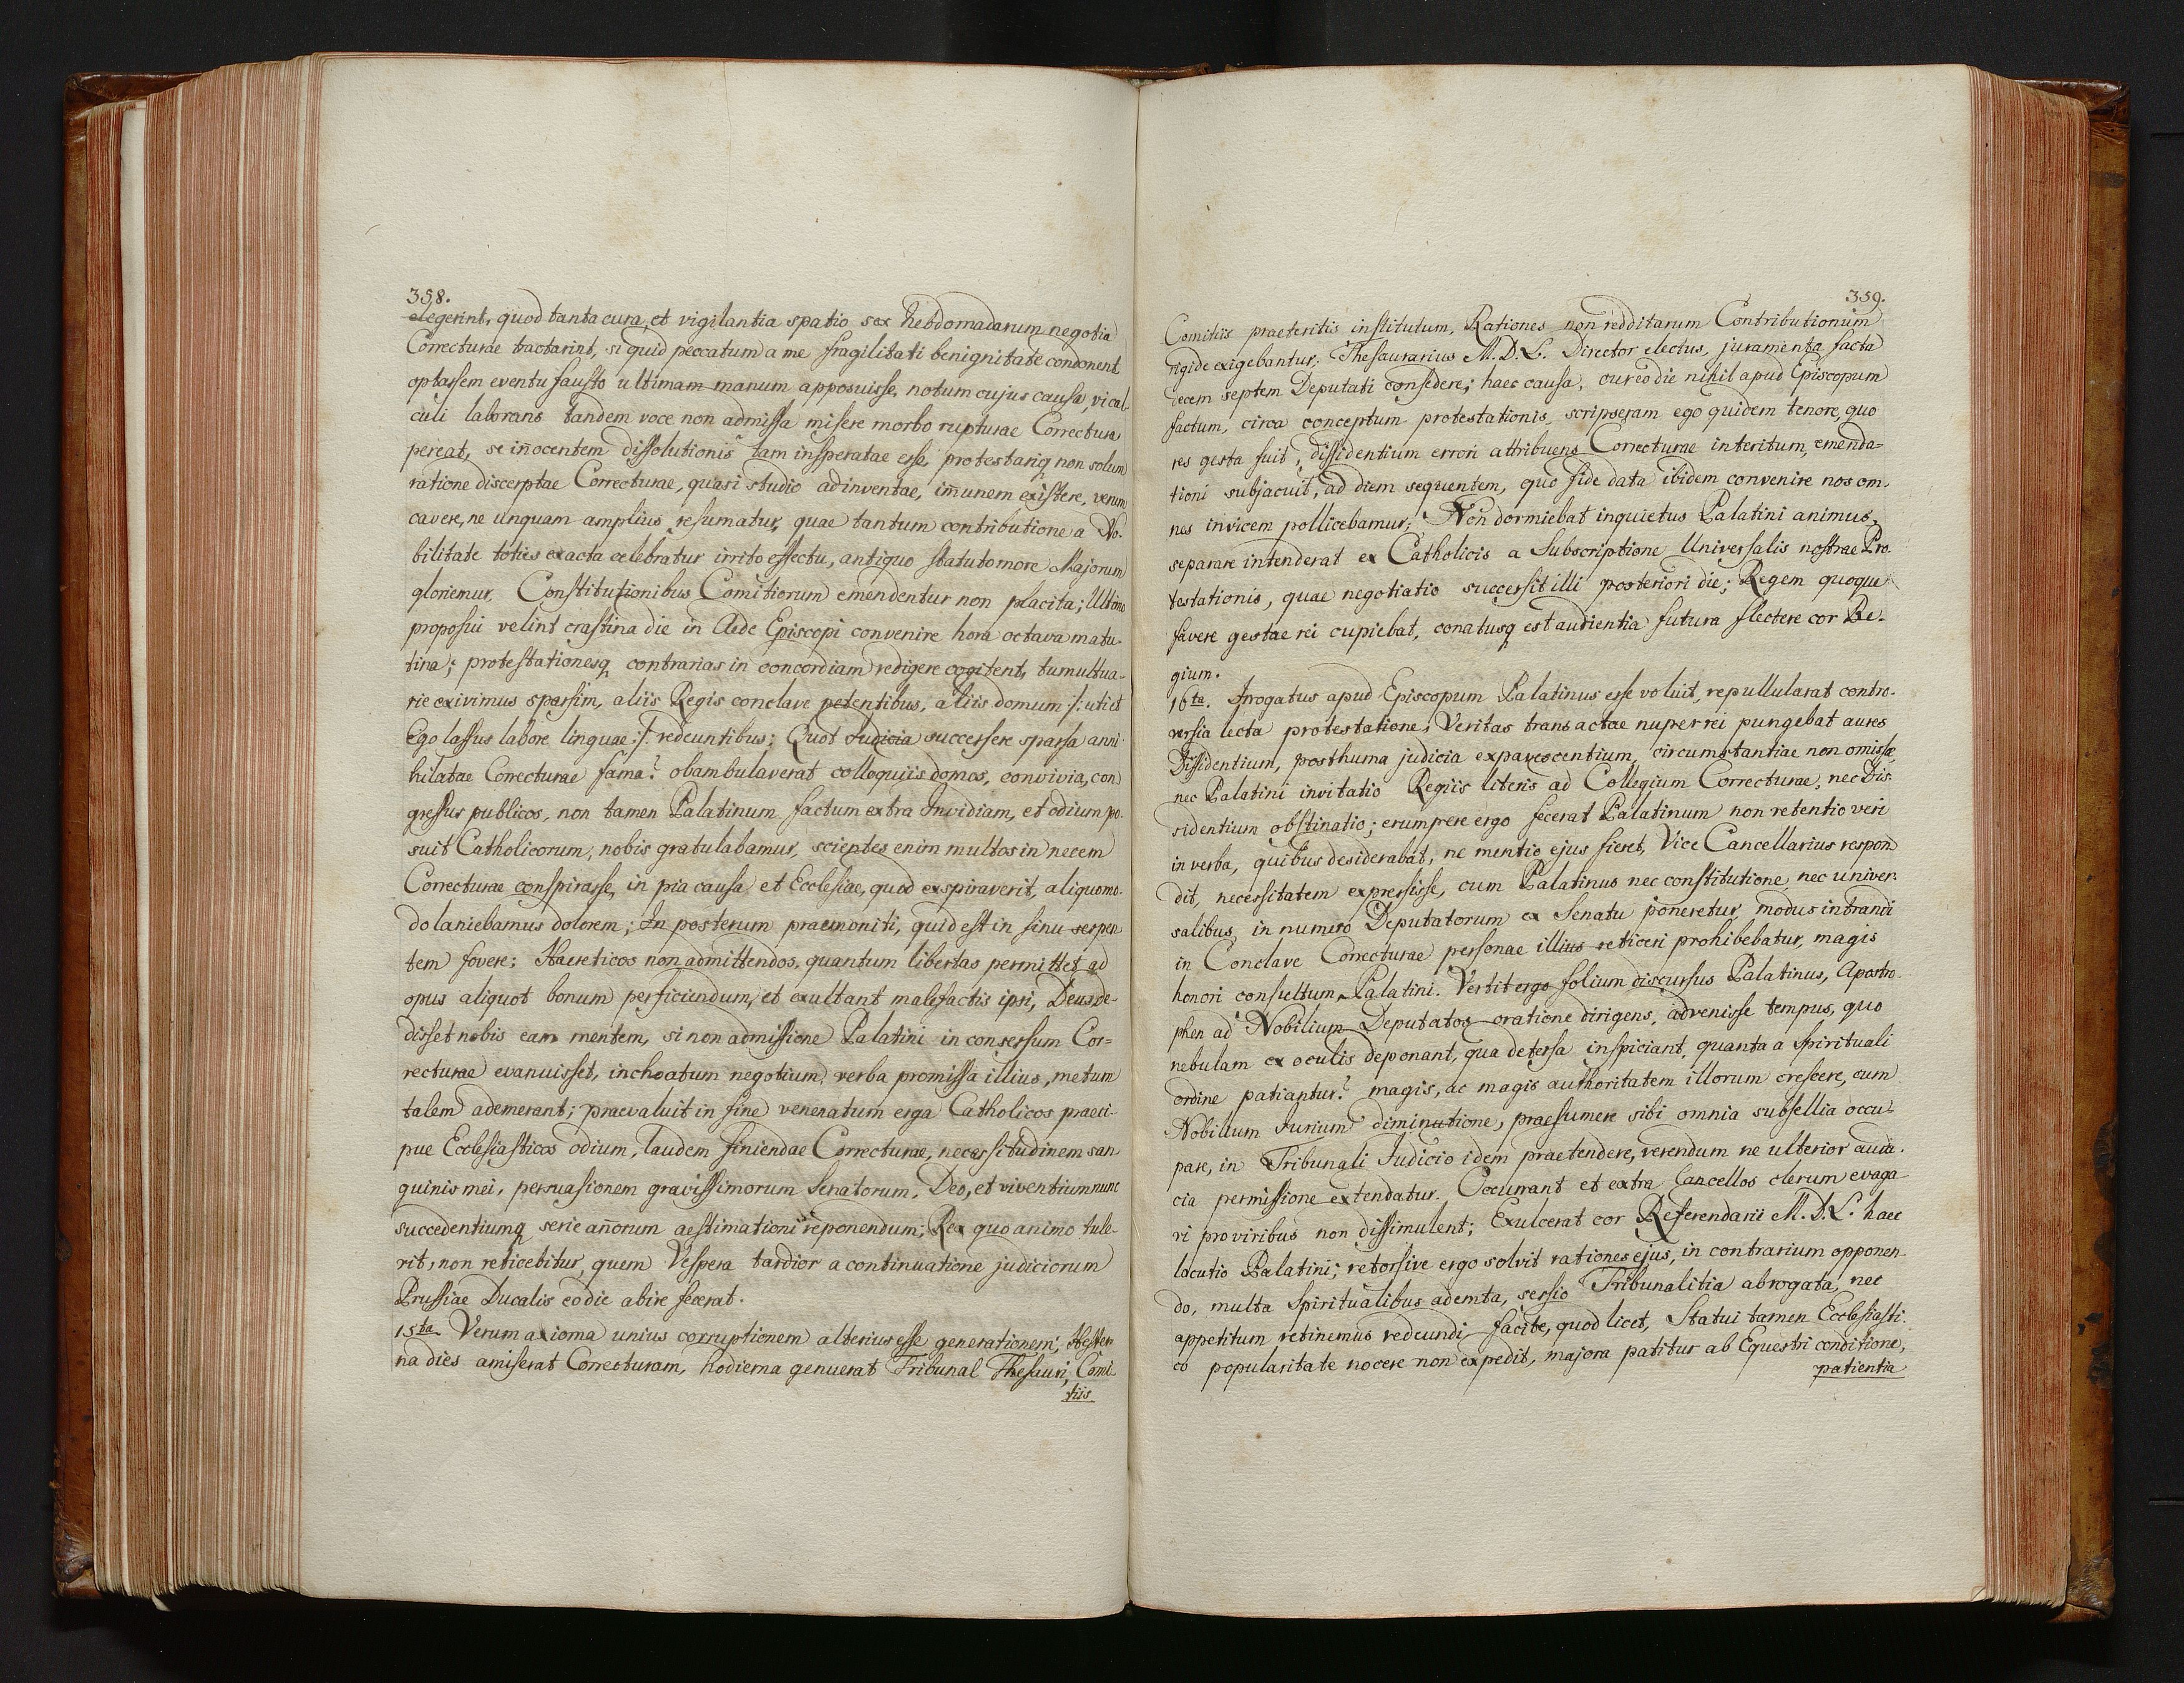 358.
elegerint, quod tanta cura, et vigilantia spatio sex hebdomadarum negotia
Correcturae tractarint, si quid peccatum a me fragilitati benignitate condonent
optassem eventu fausto ultimam manum apposuisse, notum cujus causa, vi cal-
culi laborans tandem voce non admissa misere morbo rupturae Correctura
pereat, se iñocentem dissolutionis tam insperatae esse, protestariq non solum
ratione discerptae Correcturae, quasi studio adinventae, im̃unem existere, verum
cavere, ne unquam amplius resumatur, quae tantum contributione a No-
bilitate toties exacta celebratur irrito effectu, antiquo statuto more Majorum
gloriemur, Constitutionibus Comitiorum emendentur non placita; Ultimo
proposui velint crastina die in Aede Episcopi convenire hora octava matu-
tina; protestationesq contrarias in concordiam redigere cogitent, tumultua-
rie exivimus sparsim, aliis Regis conclave petentibus, aliis domum /: uti et
Ego lassus labore linguae :/ redeuntibus; Quot Judicia successere sparsa anni-
hilatae Correcturae fama? obambulaverat colloquiis domos, convivia, con
gressus publicos, non tamen Palatinum factum extra Invidiam, et odium po-
suit Catholicorum, nobis gratulabamur, scientes enim multos in necem
Correcturae conspirasse, in pia causa et Ecclesiae, quod exspiraverit, aliquomo-
do laniebamus dolorem; In posterum praemoniti, quid est in sinu serpen
tem fovere; Haereticos non admittendos, quantum libertas permittet ad
opus aliquot bonum perficiendum, et exultant malefactis ipsi, Deus de-
disset nobis eam mentem, si non admissione Palatini in consessum Cor-
recturae evanuisset, inchoatum negotium, verba promissa illius, metum
talem ademerant; praevaluit in fine venenatum erga Catholicos praeci-
pue Ecclesiasticos odium, laudem finiendae Correcturae, necessitudinem san-
guinis mei, persuasionem gravissimorum Senatorum, Deo, et viventium nunc
succedentiumq serie añorum aestimationi reponendum; Rex quo animo tule-
rit, non reticebitur, quem Vespera tardior a continuatione judiciorum
Prussiae Ducalis eo die abire fecerat.
15ta Verum axioma unius corruptionem alterius esse generationem; Hester
na dies amiserat Correcturam, hodierna genuerat Tribunal Thesauri, Comi-
tiis
359.
Comitiis praeteritis institutum, Rationes non redditarum Contributionum
rigide exigebantur; Thesaurarius M.D.L. Director electus, juramenta facta
decem septem Deputati consedere; haec causa, cur eo die nihil apud Episcopum
factum, circa conceptum protestationis, scripseram ego quidem tenore, quo
res gesta fuit, dissidentium errori attribuens Correcturae interitum, emenda-
tioni subjacuit, ad diem sequentem, quo fide data ibidem convenire nos om-
nes invicem pollicebamur; Non dormiebat inquietus Palatini animus,
separare intenderat ex Catholicis a Subscriptione Universalis nostrae Pro-
testationis, quae negotiatio successit illi posteriori die; Regem quoque
favere gestae rei cupiebat, conatusq est audientia futura flectere cor Re-
gium.
16ta. Irrogatus apud Episcopum Palatinus esse voluit, repullularat contro-
versia lecta protestatione, Veritas transactae nuper rei pungebat aures
Dissidentium, posthuma judicia expavescentium, circumstantiae non omissae,
nec Palatini invitatio Regiis literis ad Collegium Correcturae, nec Dis-
sidentium obstinatio; erumpere ergo fecerat Palatinum non retentio veri
in verba, quibus desiderabat, ne mentio ejus fieret, Vice Cancellarius respon
dit, necessitatem expressisse, cum Palatinus nec constitutione, nec univer-
salibus, in numero Deputatorum ex Senatu poneretur, modus intrandi
in Conclave Correcturae personae illius reticeri prohibebatur, magis
honori consultum Palatini. Vertit ergo folium discursus Palatinus, Apostro-
phen ad Nobilium Deputatos oratione dirigens, advenisse tempus, quo
nebulam ex oculis deponant, qua detersa inspiciant, quanta a Spirituali
ordine patiantur? magis, ac magis authoritatem illorum crescere, cum
Nobilium Jurium diminutione, praesumere sibi omnia subsellia occu-
pare, in Tribunali Judicio idem praetendere, verendum ne ulterior auda-
cia permissione extendatur. Occurrant et extra Cancellos clerum evaga-
ri pro viribus non dissimulent; Exulcerat cor Referendarii M.D.L. haec
locutio Palatini; retorsive ergo solvit rationes ejus, in contrarium opponen-
do, multa Spiritualibus ademta, sessio Tribunalitia abrogata, nec
appetitum retinemus redeundi, facite, quod licet, Statui tamen Ecclesiasti-
co popularitate nocere non expedit, majora patitur ab Equestri conditione,
patientia